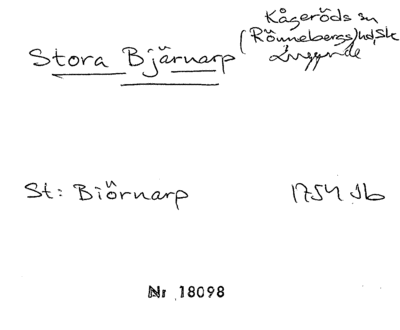 Kågeröds sn
Stora Bjärnarp (Rönnebergs) hd, Sk
Luggude
St: Biörnarp 1754 Jb
Nr 18098